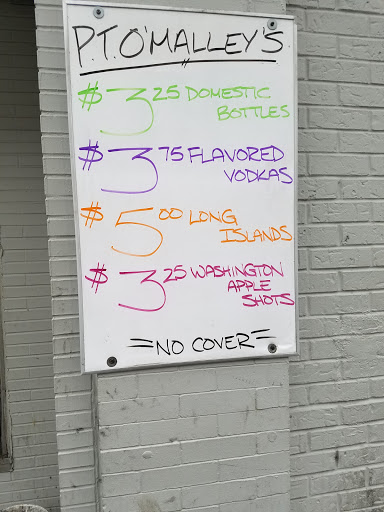 P.T.O'MALLEY'S
$3.25 DOMESTIC
BOTTLES
$3.75 FLAVORED
VODKAS
$5.00 LONG
ISLANDS
$3.25 WASHINGTON
APPLE
SHOTS
=NO COVER=